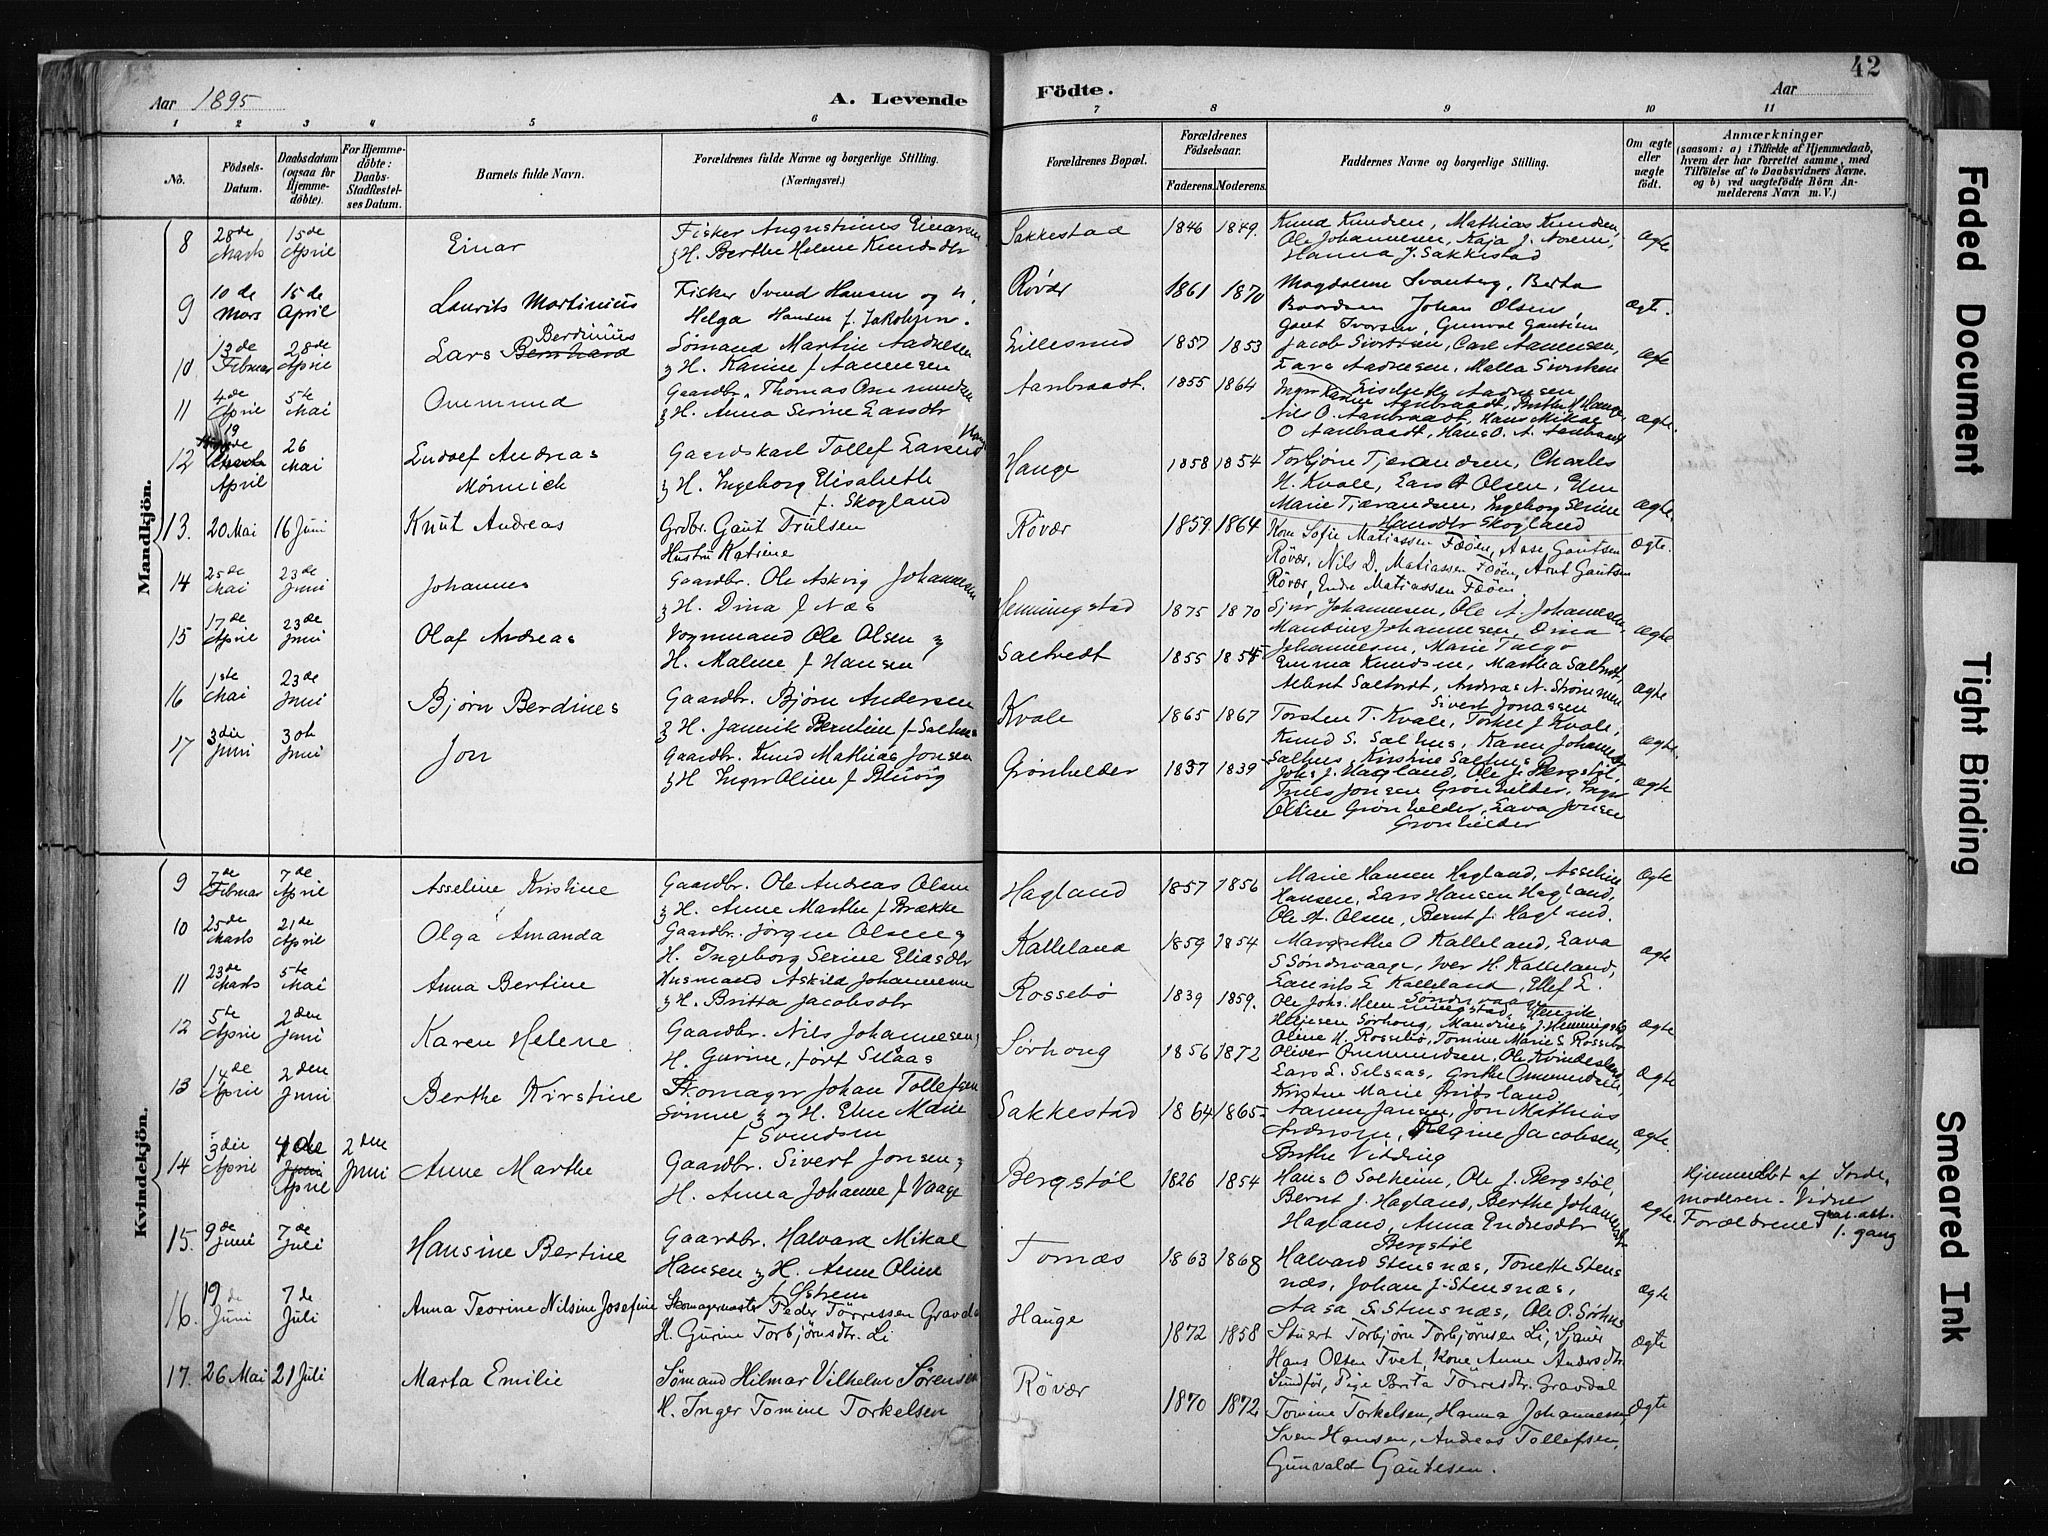 42
Aar 1895
A. Levende
Födte.
Aar
1 2 3 4 5 6 7 8 9 10 11
No.
Födsels-Datum.
Daabsdatum (ogsaa for Hjemmedöbte).
For Hjemmedöbte: Daabs-Stadfæstelses Datum.
Barnets fulde Navn.
Forældrenes fulde Navne og borgerlige Stilling. (Næringsvei.)
Forældrenes Bopæl.
Forældrenes Födselsaar.
Faderens. Moderens.
Faddernes Navne og borgerlige Stilling.
Om ægte eller uægte födt.
Anmærkninger
(saasom: a) i Tilfælde af Hjemmedaab, hvem der har forrettet samme, med Tilföielse af to Daabsvidners Navne. og b) ved uægtefödte Börn Anmelderens Navn m. V.)
Mandkjön.
8 28de Marts 15de April Einar
Fisker Augustinus Einarsen
& H. Berthe Helene Knudsdtr
Sakkestad 1846 1849.
Knud Knudsen, Mathias Knudsen,
Ole Johannesen, Kaja J. Norem,
Hanna J. Sakkestad
Ægte
9 10de Mars 15de April Laurits Martinius
Fisker Svend Hansen og H.
Helga Hansen f. Jakobsen.
Røvær 1861 1870
Magdalene Svanberg, Berta
Baardsen Johan Olsen
Gaut Ivarsen, Gunval Gautsen
Ægt.
10 13de Februar 28de April Lars Bernhard Berdinius
Sømand Martin Aadnesen
& H. Karine f Aanensen
1857 1853
Jacob Sivertsen, Carl Aanensen,
Lars Aadnesen, Malla Sivertsen
Ægte
11 4de April 5te Mai Ommund
Gaardbr. Thomas Ommundsen
& H. Anna Serine Larsdtr
Aanbraadt. 1855 1864
Nils O. Aanbraadt, Hans Mikal
O Aanbraadt, Hans O. A. Aanbraadt
Ægte.
12 19de April 26 Mai Ludolf Andreas Mönnich
Gaardskarl Tollef Larsen
& H. Ingeborg Elisabeth
f. Skogland
Hauge 1858 1854
Torbjørn Tjærandsen, Charles
H. Kvale, Lars A Olsen, Elen
Marie Tjærandsen, Ingeborg Serine
Hansdtr Skogland
Ægte.
13. 20 Mai 16 Juni Knut Andreas
Grdbr. Gaut Trulsen
Hustru Katrine
Røvær 1859 1864
Kone Sofie Matiassen Fæöen, Aase Gautsen
Røvær, Nils D. Matiassen Fæöen, Arnt Gautsen
Røvær, Endre Matiassen Fæöen.
Ægte.
14 25de Mai 23de Juni Johannes
Gaardbr. Ole Askvig Johannesen
& H. Dina f Næs
Hemmingstad 1875 1870
Sjur Johannesen, Ole A. Johannesen,
Mandius Johannesen, Dina
Johannesen, Marie
Ægte
15 17de April 23de Juni Olaf Andreas
Vognmand Ole Olsen &
H. Malene f Hansen
Saltvedt 1855 1854
Emma Knudsen, Martha Saltvedt,
Albert Saltvedt, Andreas N. Strømmen
Sivert Jonassen
Ægte
16 1ste Mai 23de Juni Bjørn Berdines
Gaardbr. Bjørn Andersen
& H. Jannik Berntine f Salhus
Kvale 1865 1867
Torsten T. Kvale, Torkel J Kvale,
Knud S. Salhus, Karen Johanne
Salhus, Kirstine Salhus
Ægte
17 3die Juni Juni Jon
Gaardbr. Knud Mathias Jonsen
& H Inger Oline f
Grønhelder 1837 1839
Johs J. Hagland, Ole J. Bergstøl,
Truls Jonsen Grønhelder, Inger
Oline Grønhelder, Lava Jonsen
Grønhelder
Ægte
Kvindekjön.
9 7de Februar 7de April Asseline Kristine
Gaardbr. Ole Andreas Olsen
& H. Anne Marthe f Brække
Hagland 1857 1856
Marie Hansen Hagland, Asseline
Hansen, Lars Hansen Hagland,
Ole A. Olsen, Bernt J. Hagland.
Ægte
10 25de Marts 21de April Olga Amanda
Gaardbr. Jörgen Olsen &
H. Ingeborg Serine Eliasdtr
Kalleland 1859 1854
Margrethe O Kalleland, Lava
S Söndrvaage, Iver H. Kalleland,
Laurits L Kalleland, Ellef E.
Søndrvaage
Ægte
11 23de Marts 5te Mai Anna Bertine
Husmand Askild Johannesen
& H. Britta Jacobsdtr
Rossebø 1839 1859.
Ole Johs. Hemmingstad, Henrik
Helgesen Sørhong, Mandius J. Hemmingstad
Oline H. Rossebø, Tomine Marie S Rossebø
Ægte
12 5te April 2den Juni Karen Helene
Gaardbr. Nils Johannesen &
H. Gurine, født Silaas
Sørhong 1856 1872
Oliver Ommundsen, Ole Kvindesland
Lars L. Silsaas, Grethe Ommundsen,
Kristen Marie
Ægte
13 14de April 2den Juni Berthe Kirstine
Skomager Johan Tollefsen
Sömme & og H. Elen Marie
f Svendsen
Sakkestad 1864 1865
Aanen Jansen, Jon Mathias
Andersen, Regine Jacobsen,
Berthe Vidding
Ægte
14 3die April 4de Juni April 2den Juni Anne Marthe
Gaardbr. Sivert Jonsen &
H. Anna Johanne f Vaage
Bergstøl 1826 1854
Hans O Solheim, Ole J. Bergstøl,
Bernt J. Hagland, Berthe Johannes
Hagland, Anna Endresdtr
Bergstøl
Ægte.
Hjemmedøbt af Jorde-
moderen. Vidner
Forældrene
1. gang
15. 9de Juni 7de Juli Hansine Bertine
Gaardbr. Halvard Mikal
Hansen & H. Anne Oline
f Østrem
Tornæs 1863 1868
Halvard Stensnæs, Tonette Stens
næs, Johan J. Stensnæs,
Aasa S. Stensnæs, Ole O. Sörhus
Ægte
16. 19de Juni 7de Juli Anna Teorine Nilsine Josefine
Skomagermester Peder Tørressen Gravdal
H. Gurine Torbjørnsdtr. Li
Hauge 1872 1858
Torbjørn Torbjørnsen Li,
Hans Olsen Tvet, Kone Anne Andersdtr.
Sundför, Pige Brita Törresdtr. Gravdal
Ægte
17. 26 Mai 21 Juli Marta Emilie
Sømand Hilmar Vilhelm Sörensen
H. Inger Tomine Torkelsen
Røvær 1870 1872
Tomine Torkelsen, Hanna Johannessen
Sven Hansen, Andreas Tollefsen,
Gunvald Gautesen.
Ægte
Faded Document
Tight Binding
Smeared Ink